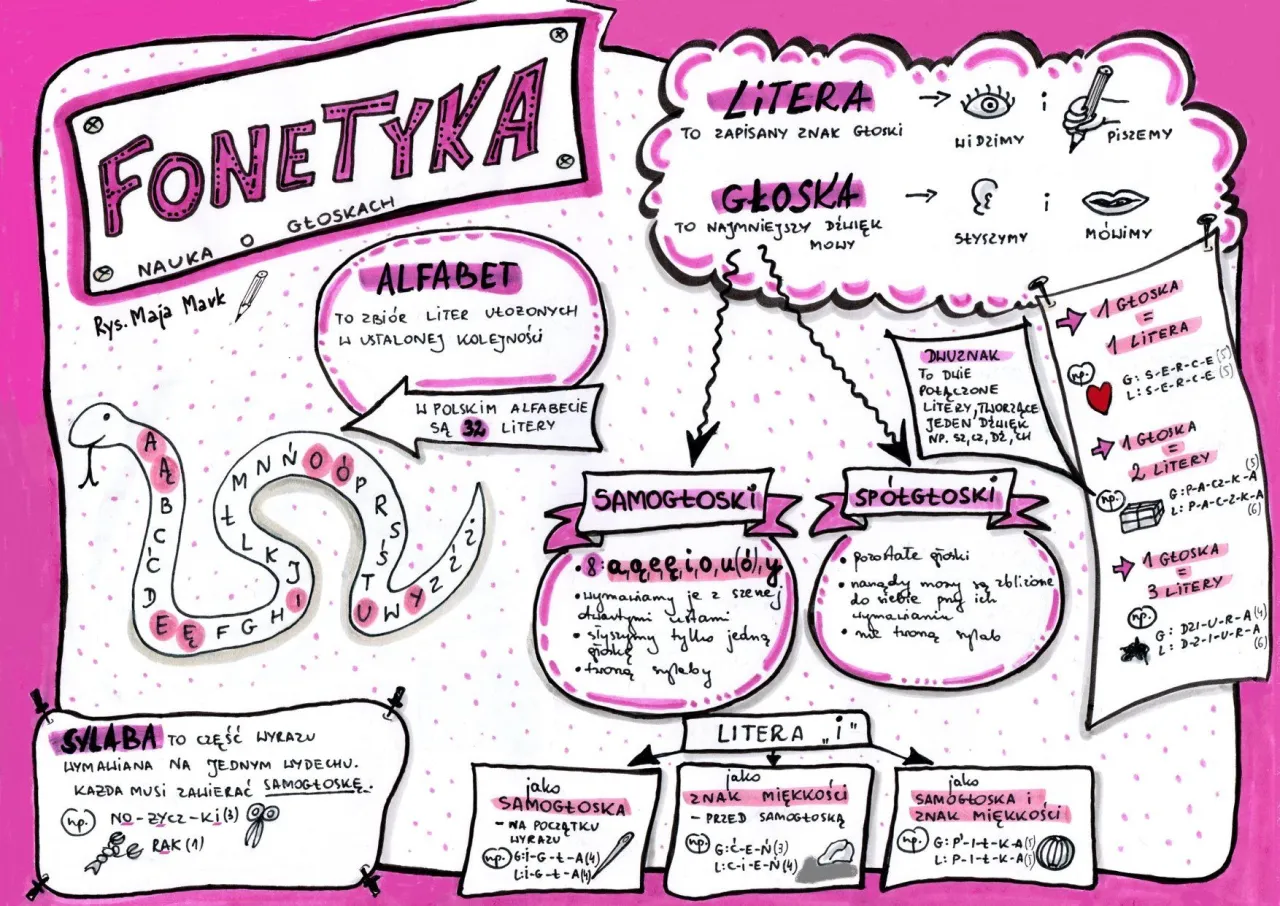 FONETYKA
NAUKA O GŁOSKACH
Rys. Maja Mark
LITERA
TO ZAPISANY ZNAK GŁOSKI
WIDZIMY
i
PISZEMY
GŁOSKA
TO NAJMNIEJSZY DŹWIĘK
MOWY
SŁYSZYMY
i
MÓWIMY
ALFABET
TO ZBIÓR LITER UŁOŻONYCH
W USTALONEJ KOLEJNOŚCI
W POLSKIM ALFABECIE
SĄ 32 LITERY
A Ą B C Ć D E Ę F G H I J K L Ł M N Ń O Ó P R S Ś T U W Y Z Ź Ż
DWUZNAK
TO DWIE
POŁĄCZONE
LITERY, TWORZĄCE
JEDEN DŹWIĘK
NP. SZ, CZ, DŹ, CH
1 GŁOSKA
=
1 LITERA
np.
G: S-E-R-C-E (5)
L: S-E-R-C-E (5)
1 GŁOSKA
=
2 LITERY
np.
G: P-A-CZ-K-A (5)
L: P-A-C-Z-K-A (6)
1 GŁOSKA
=
3 LITERY
np.
G: DZI-U-R-A (4)
L: D-Z-I-U-R-A (6)
SAMOGŁOSKI
• 8: a, ą, e, ę, i, o, u(ó), y
• wymawiamy je z szerzej
otwartymi ustami
• słyszymy tylko jedną
głoskę
• tworzą sylaby
SPÓŁGŁOSKI
• pozostałe głoski
• narządy mowy są zbliżone
do siebie przy ich
wymawianiu
• nie tworzą sylab
SYLABA TO CZĘŚĆ WYRAZU
WYMAWIANA NA JEDNYM WYDECHU.
KAŻDA MUSI ZAWIERAĆ SAMOGŁOSKĘ.
np. NO-ŻYCZ-KI (3)
RAK (1)
LITERA „i"
jako
SAMOGŁOSKA
- NA POCZĄTKU
WYRAZU
np. G: I-G-Ł-A (4)
L: I-G-Ł-A (4)
jako
ZNAK MIĘKKOŚCI
- PRZED SAMOGŁOSKĄ
np. G: Ć-E-Ń (3)
L: C-I-E-Ń (4)
jako
SAMOGŁOSKA I
ZNAK MIĘKKOŚCI
np. G: P'-I-Ł-K-A (5)
L: P-I-Ł-K-A (5)